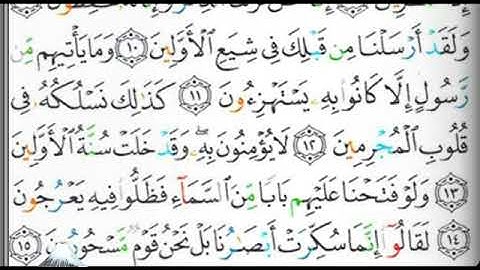 وَلَقَدْ أَرْسَلْنَا مِن قَبْلِكَ فِى شِيَعِ ٱلْأَوَّلِينَ ١٠ وَمَا يَأْتِيهِم مِّن
رَّسُولٍ إِلَّا كَانُوا۟ بِهِۦ يَسْتَهْزِءُونَ ١١ كَذَٰلِكَ نَسْلُكُهُۥ فِى
قُلُوبِ ٱلْمُجْرِمِينَ ١٢ لَا يُؤْمِنُونَ بِهِۦ ۖ وَقَدْ خَلَتْ سُنَّةُ ٱلْأَوَّلِينَ
١٣ وَلَوْ فَتَحْنَا عَلَيْهِم بَابًا مِّنَ ٱلسَّمَآءِ فَظَلُّوا۟ فِيهِ يَعْرُجُونَ
١٤ لَقَالُوٓا۟ إِنَّمَا سُكِّرَتْ أَبْصَٰرُنَا بَلْ نَحْنُ قَوْمٌ مَّسْحُورُونَ ١٥